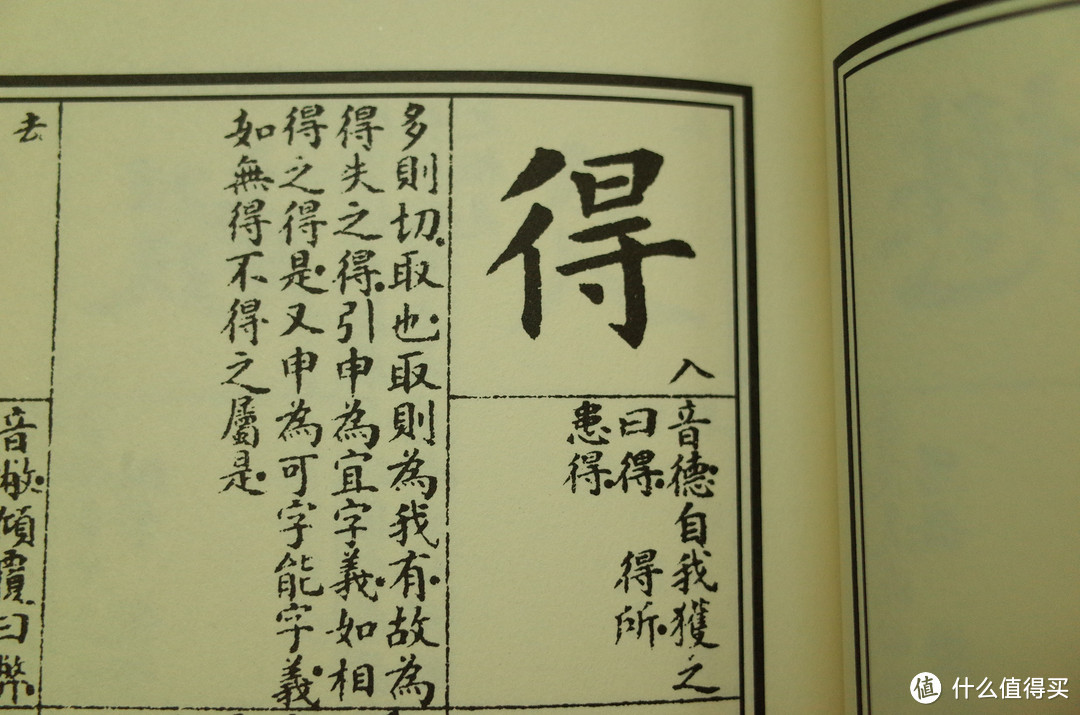 得
入
音德。自我獲之
曰得。 得所。
患得。
多則切。取也。取則為我有。故為
得失之得。引申為宜字義。如相
得之得是。又申為可字能字義。
如無得不得之屬是。
去
音
曰
值 什么值得买